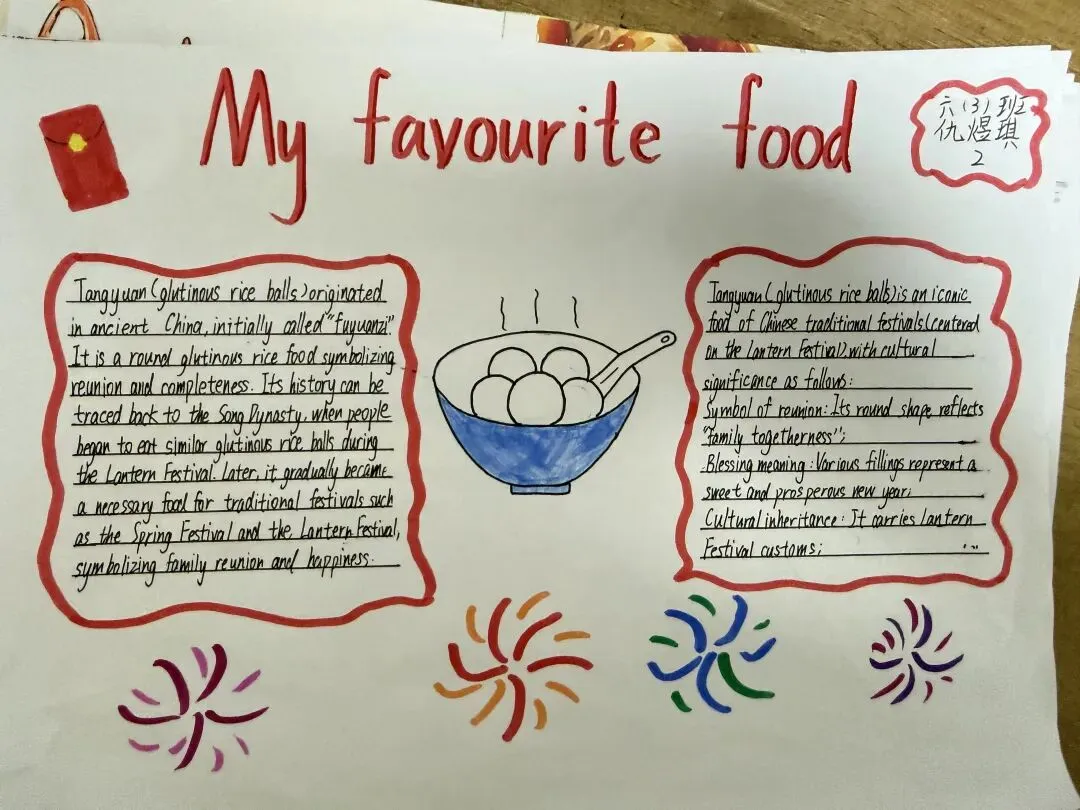 My favourite food
六(3)班
仇煜琪
2
Tangyuan(glutinous rice balls)originated
in ancient China, initially called "fuyuanzi"
It is a round glutinous rice food symbolizing
reunion and completeness. Its history can be
traced back to the Song Dynasty, when people
began to eat similar glutinous rice balls during
the Lantern Festival. Later, it gradually became
a necessary food for traditional festivals such
as the Spring Festival and the Lantern Festival,
symbolizing family reunion and happiness.
Tangyuan(glutinous rice balls)is an iconic
food of Chinese traditional festivals(centered
on the Lantern Festival),with cultural
significance as follows:
Symbol of reunion: Its round shape reflects
"family togetherness";
Blessing meaning: Various fillings represent a
sweet and prosperous new year;
Cultural inheritance: It carries Lantern
Festival customs;